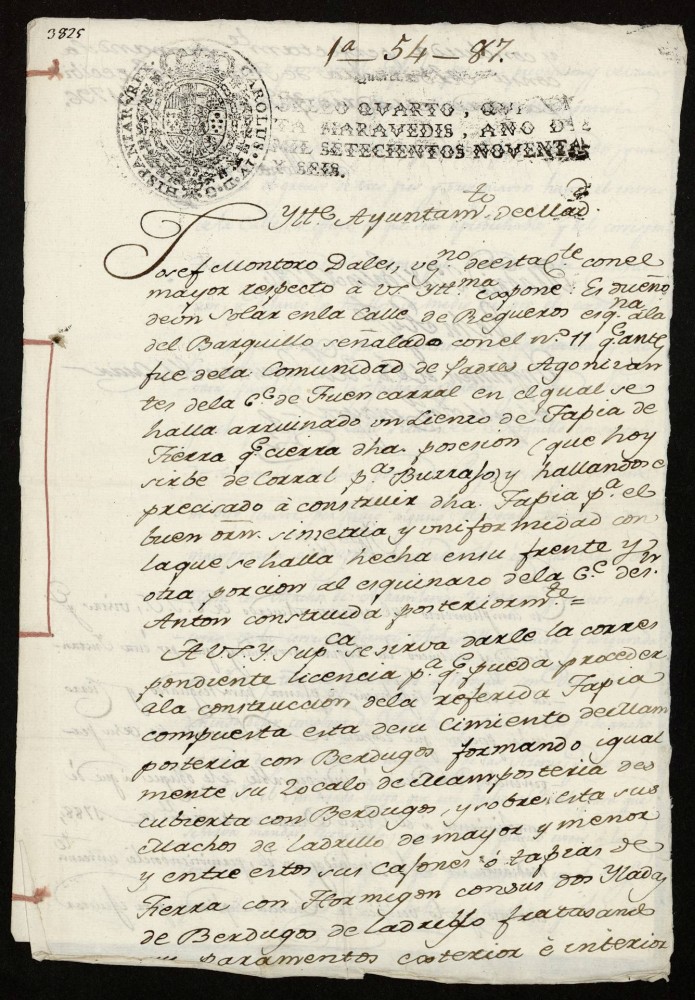 3825
1a - 54 - 87.
HISPANIARUM REX CAROLUS IV D. G.
QVARTO, QV
TA MARAVEDIS, AÑO DE
MIL SETECIENTOS NOVENTA
Y SEIS.
Ytte. Ayuntamto. de Mad.
Josef Montoro Dales, veno. de esta Cte con el
mayor respecto à VS Yttma. expone: Es dueño
de vn Solar en la Calle de Regueros esqna. ala
del Barquillo señalado con el no. 11 qe. antes
fue dela Comunidad de Padres Agonizan
tes dela Ce. de Fuencarral en el qual se
halla arruinado vn Lienzo de Tapia de
Tierra qe. cierra dha. posesion (que hoy
sirbe de Corral pa. Burras) y hallandose
precisado à construir dha. Tapia pa. el
buen orn. simetria y vniformidad con
la que se halla hecha en su frente y
otra porcion al esquinazo dela Ce. de Sn.
Anton construida posteriormte. =
A VS. Y. supca. se sirva darle la corres
pondiente licencia pa. qe. pueda proceder
ala construccion dela referida Tapia
compuesta esta de su Cimiento de Mam
posteria con Berdugos formando igual
mente su Zocalo de Mamposteria des
cubierta con Berdugos, y sobre esta sus
Machos de ladrillo de mayor y menor
y entre estos sus Cajones ó tapias de
Tierra con Hormigon con sus dos Yladas
de Berdugos de ladrillo fratasando
sus paramentos exterior è interior